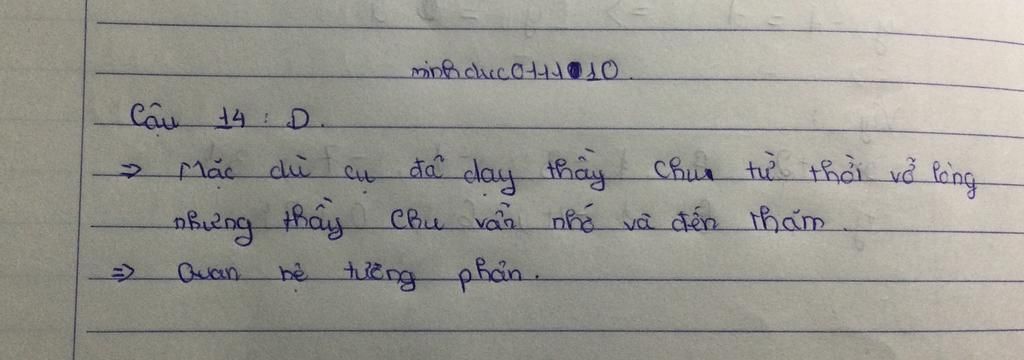 minhduc0111010.
Câu 14: D.
=> Mặc dù cụ đã dạy thầy Chu từ thời vỡ lòng
nhưng thầy Chu vẫn nhớ và đến thăm.
=> Quan hệ tương phản.